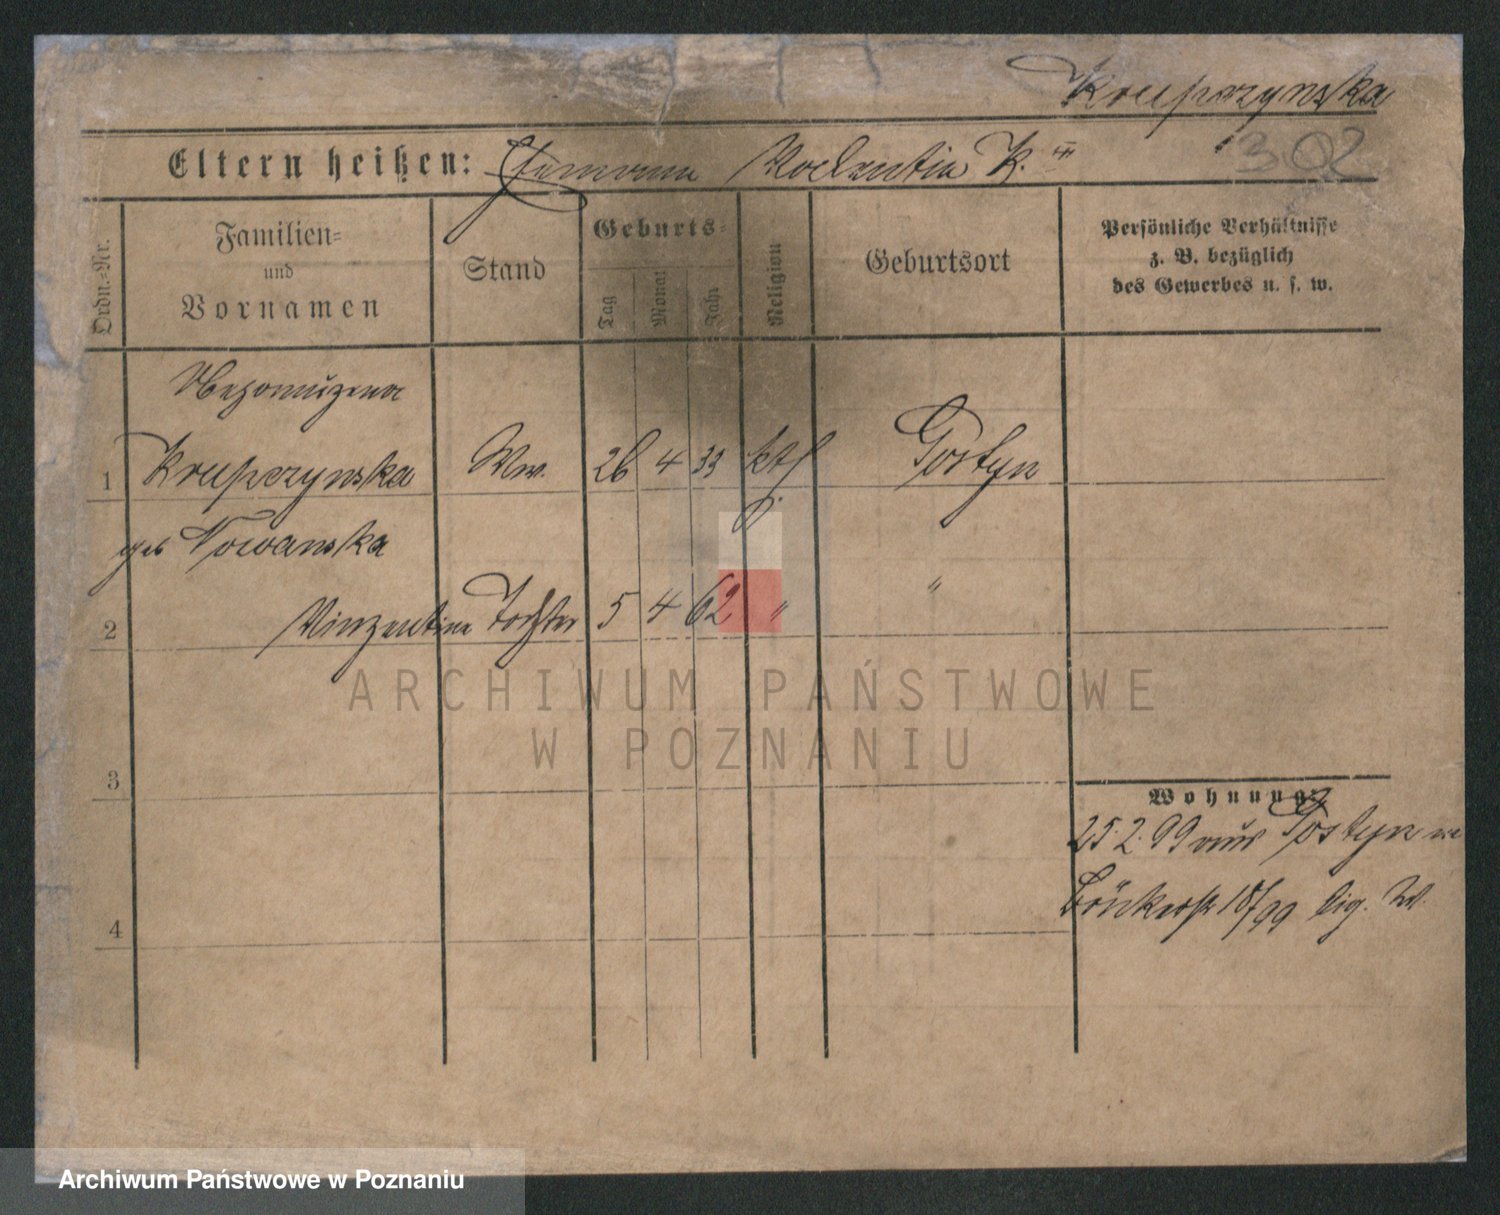 Krupczynska
302
Eltern heißen: Ehemann Valentin K. III
Ordn.-Nr.
Familien-
und
Vornamen
Stand
Geburts-
Tag
Monat
Jahr
Religion
Geburtsort
Persönliche Verhältnisse
z. B. bezüglich
des Gewerbes u. s. w.
Nepomuzena
1 Krupczynska Ww. 26 4 33 kth Gostyn
geb Nowanska
2 Vinzentine Tochter 5 4 62 " "
ARCHIWUM PAŃSTWOWE
W POZNANIU
3
Wohnung:
25.2.99 aus Gostyn
18/99
4
Archiwum Państwowe w Poznaniu